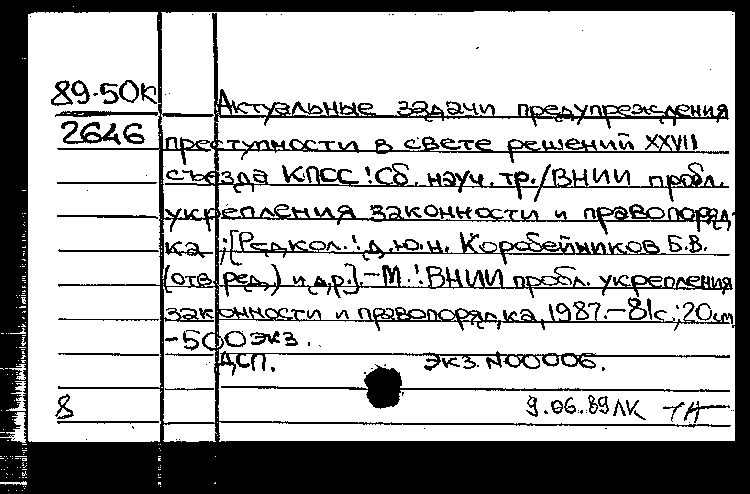 89-50К
Актуальные задачи предупреждения
2646
преступности в свете решений XXVII
съезда КПСС : Сб. науч. тр./ВНИИ пробл.
укрепления законности и правопоряд-
ка ; [Редкол. : д.ю.н. Коробейников Б.В.
(отв. ред.) и др.]. - М. : ВНИИ пробл. укрепления
законности и правопорядка, 1987. - 81с.; 20см
- 500 экз.
ДСП. экз. N00006.
8
9.06.89 ЛК